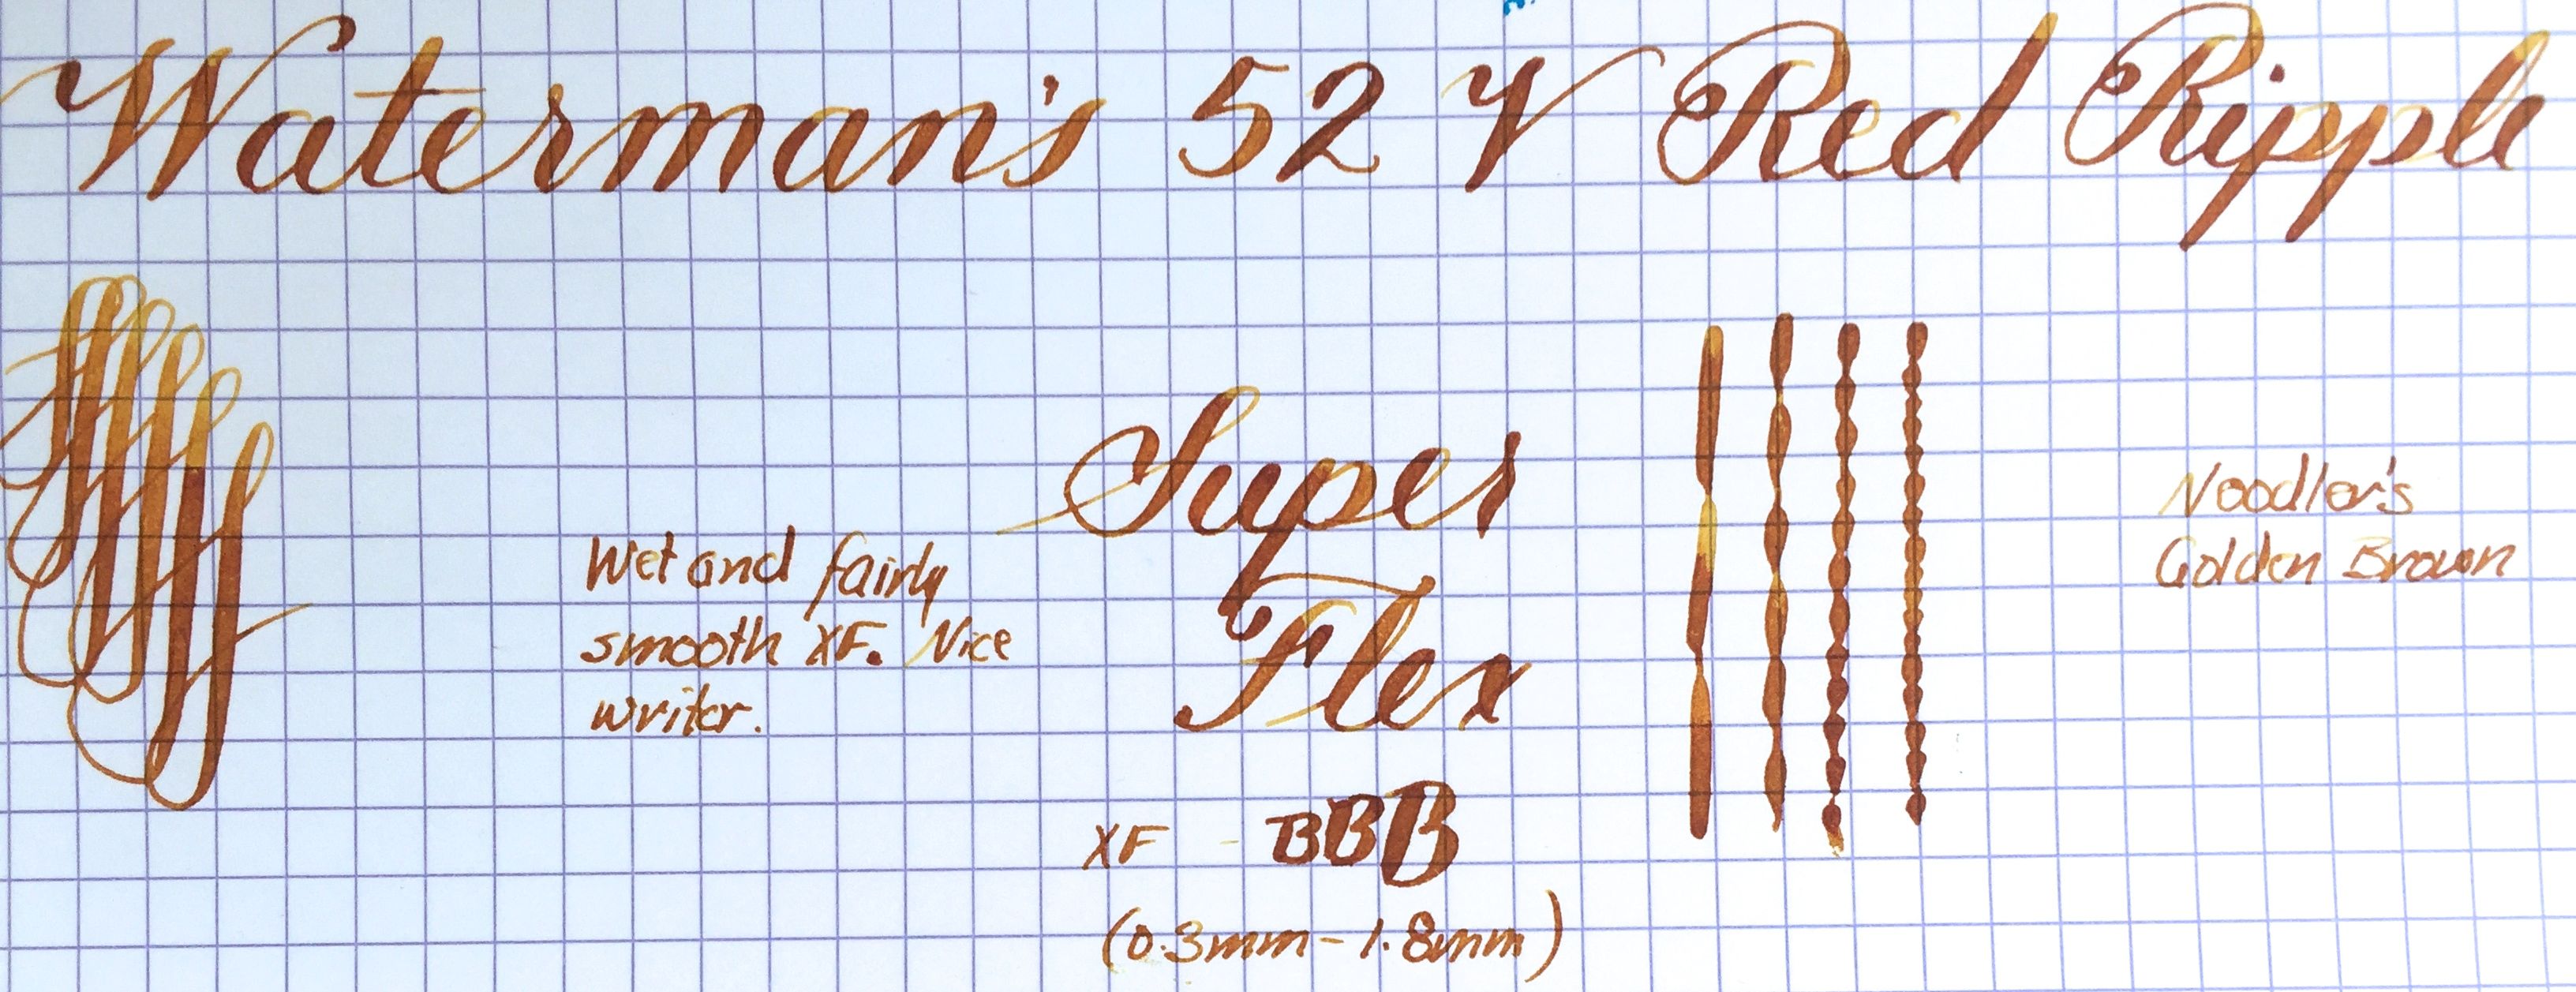 Waterman's 52 V Red Ripple
Wet and fairly
smooth XF. Nice
writer.
Super
Flex
XF - BBB
(0.3mm - 1.8mm)
Noodler's
Golden Brown